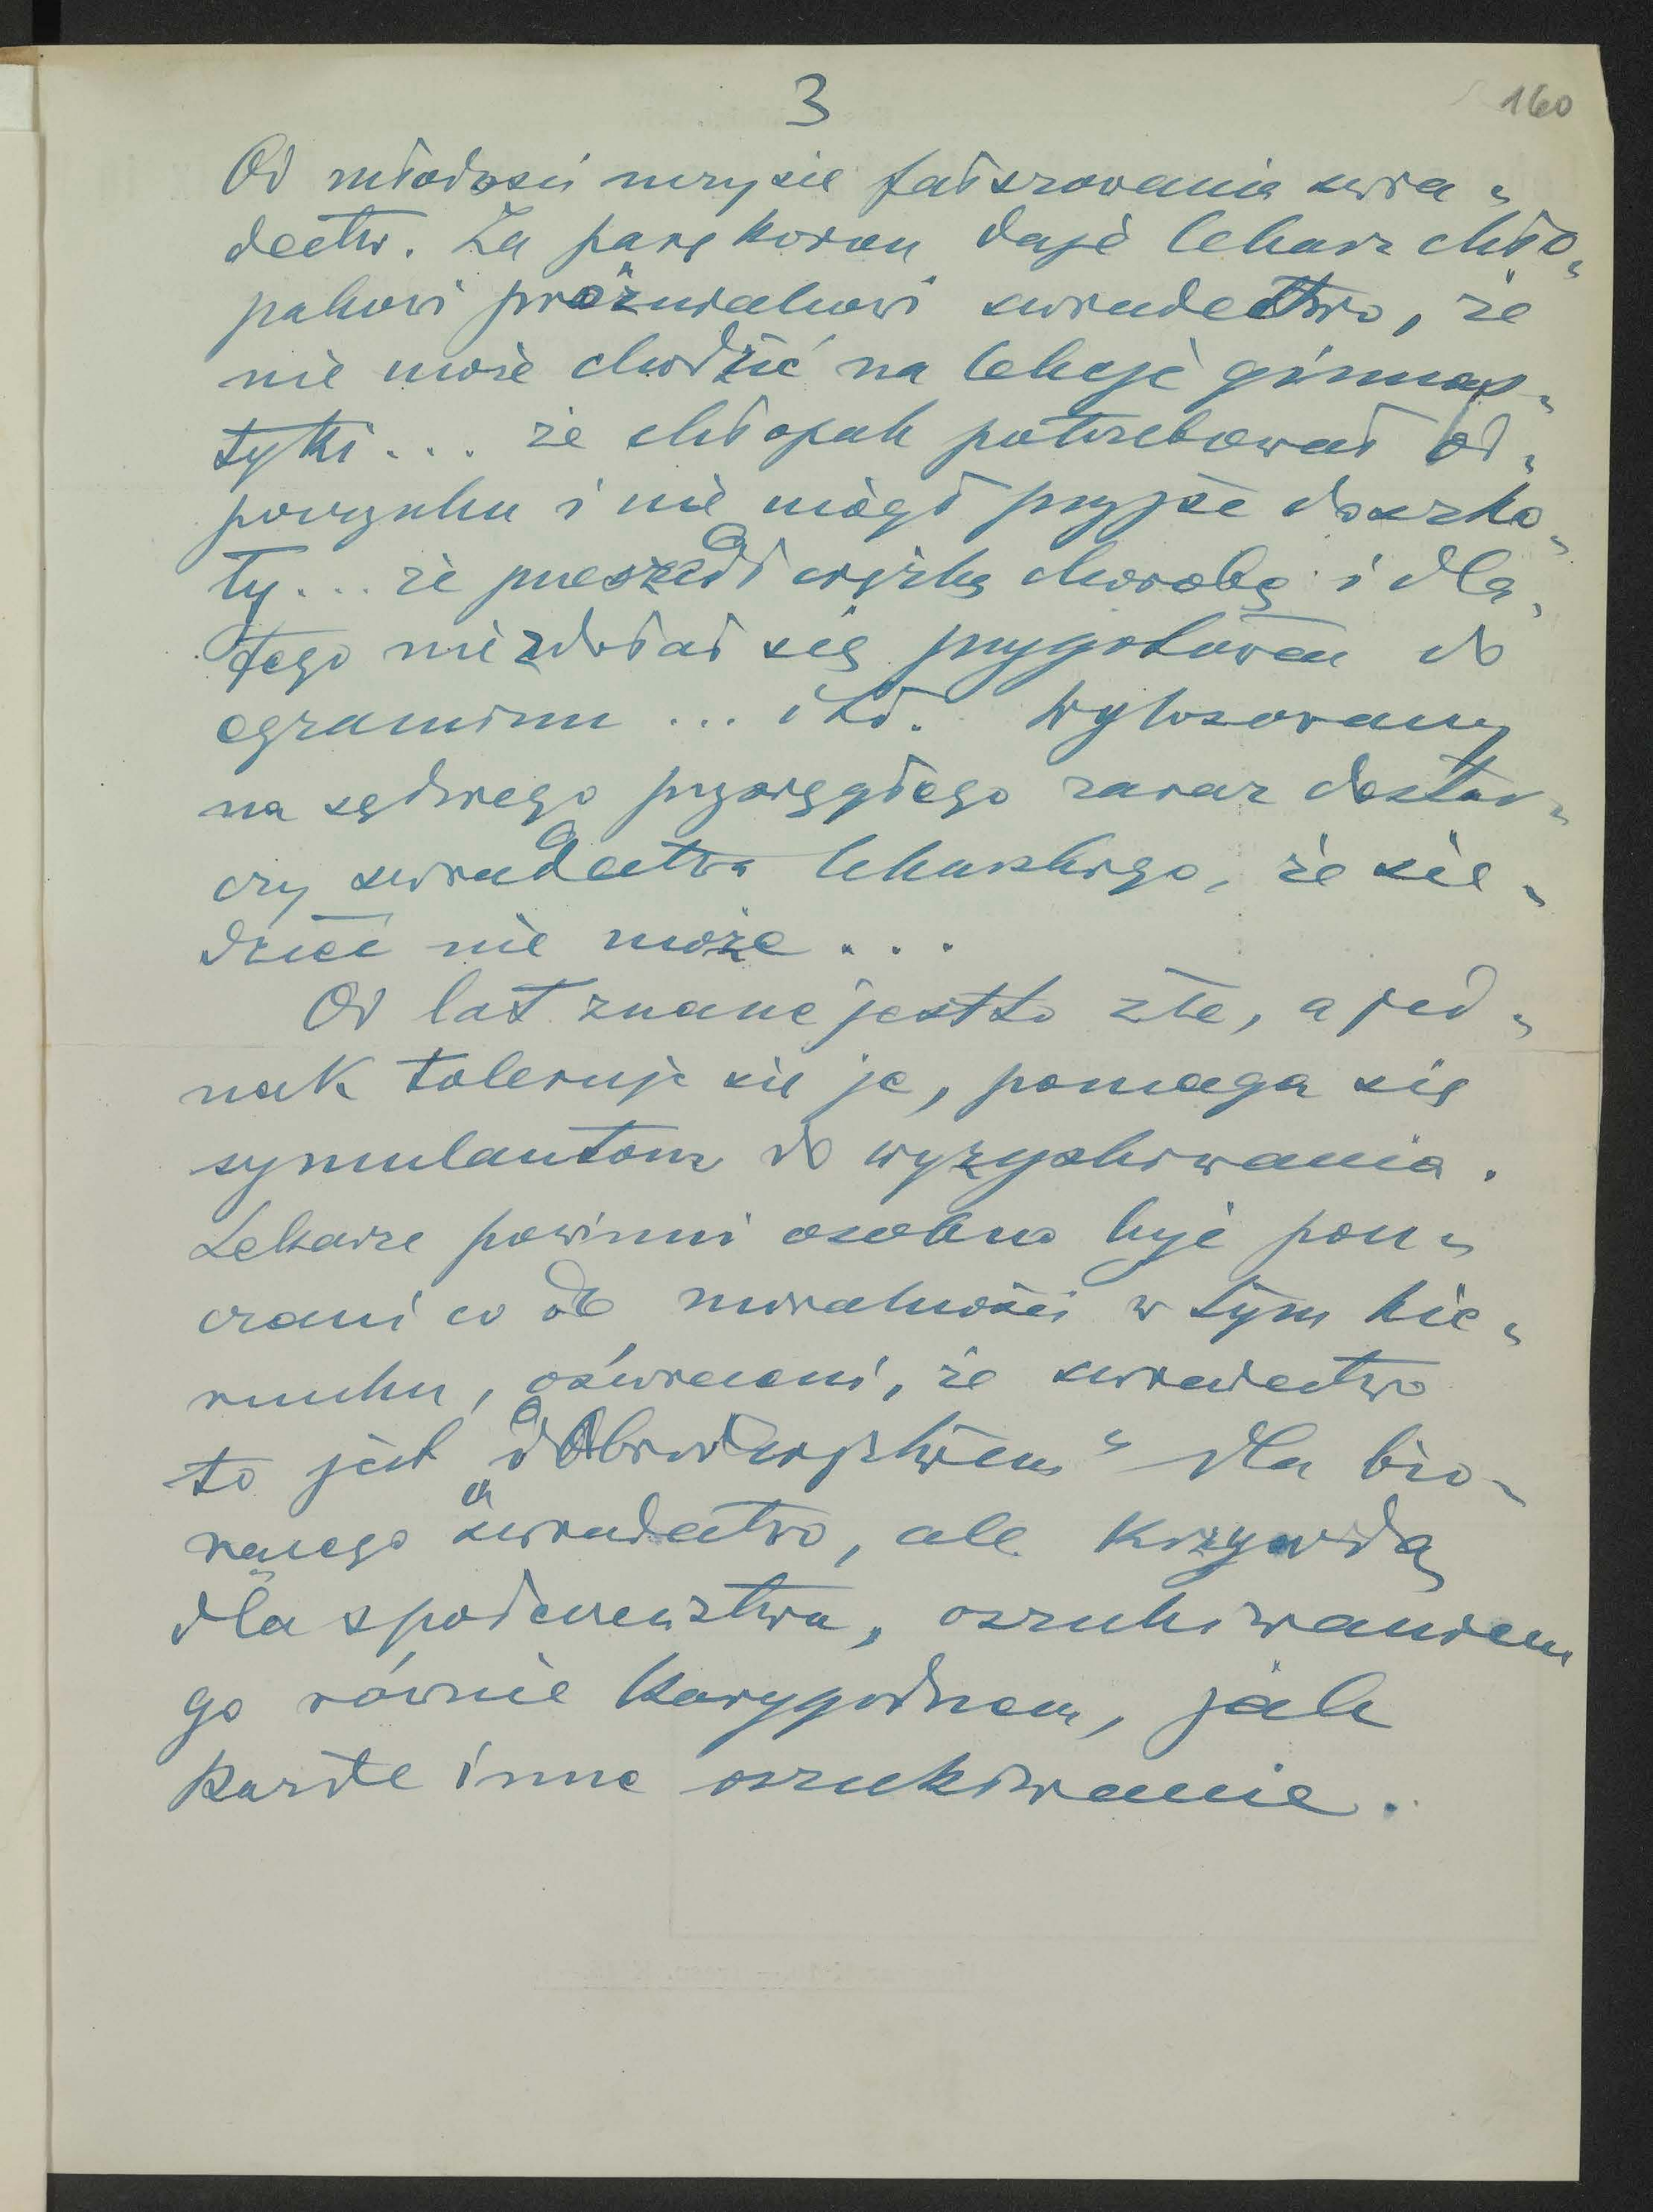 3
160
Od młodości uczy się fałszowania świa„
dectw. Za parę koron daje lekarz chło„
pakowi próżniakowi świadectwo, że
nie może chodzić na lekcje gimnas„
tyki... że chłopak potrzebował od„
poczynku i nie mógł przyjść do szko„
ły... że przeszedł ciężką chorobę i dla„
tego nie zdołał się przygotować do
egzaminu... itd. Wylosowany
na sędziego przysięgłego zaraz dostar„
czy świadectwa lekarskiego, że sie„
dzieć nie może...
Od lat znane jest to złe, a jed„
nak toleruje się je, pomaga się
symulantom do wyzyskiwania.
Lekarze powinni osobno być pou„
czani co do moralności w tym kie„
runku, oświeceni, że świadectwo
to jest „dobrodziejstwem" dla bio„
rącego świadectwo, ale krzywdą
dla społeczeństwa, oszukiwaniem
go równie karygodnem, jak
każde inne oszukiwanie.